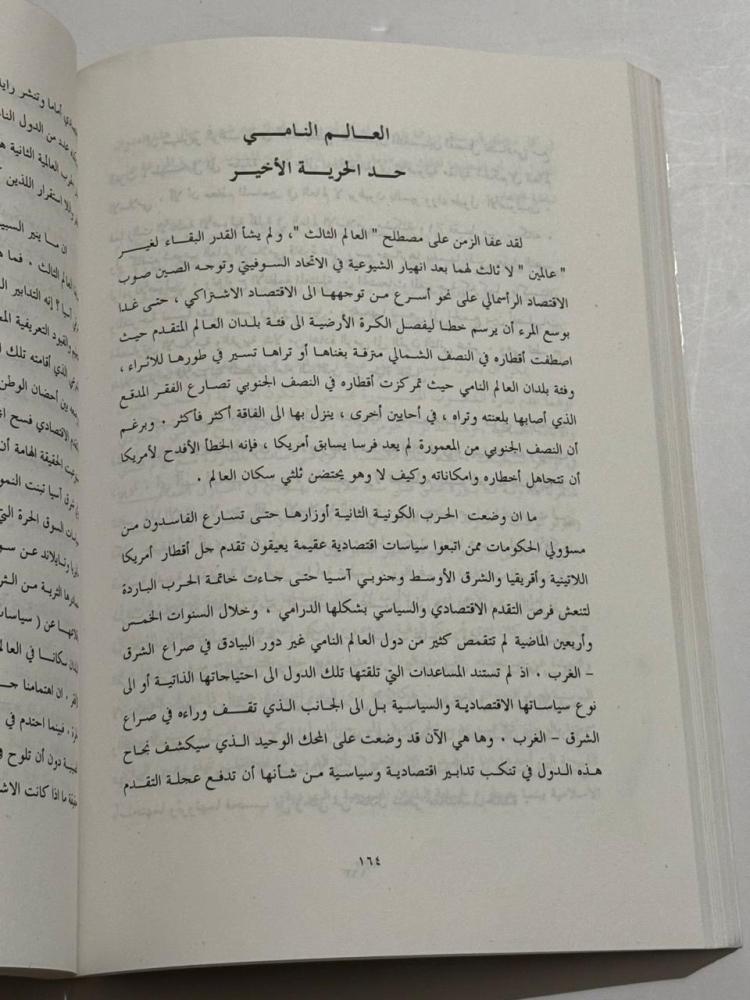 العالم النامي
حد الحرية الأخير
لقد عفا الزمن على مصطلح " العالم الثالث "، ولم يشأ القدر البقاء لغير
" عالمين " لا ثالث لهما بعد انهيار الشيوعية في الاتحاد السوفيتي وتوجه الصين صوب
الاقتصاد الرأسمالي على نحو أسرع من توجهها الى الاقتصاد الاشتراكي ، حتى غدا
بوسع المرء أن يرسم خطا ليفصل الكرة الأرضية الى فئة بلدان العالم المتقدم حيث
اصطفت أقطاره في النصف الشمالي مترفة بغناها أو تراها تسير في طورها للاثراء ،
وفئة بلدان العالم النامي حيث تمركزت أقطاره في النصف الجنوبي تصارع الفقر المدقع
الذي أصابها بلعنته وتراه ، في أحايين أخرى ، ينزل بها الى الفاقة أكثر فأكثر . وبرغم
أن النصف الجنوبي من المعمورة لم يعد فرسا يسابق أمريكا ، فإنه الخطأ الأفدح لأمريكا
أن تتجاهل أخطاره وامكاناته وكيف لا وهو يحتضن ثلثي سكان العالم .
ما ان وضعت الحرب الكونية الثانية أوزارها حتى تسارع الفاسدون من
مسؤولي الحكومات ممن اتبعوا سياسات اقتصادية عقيمة يعيقون تقدم جل أقطار أمريكا
اللاتينية وأفريقيا والشرق الأوسط وجنوبي آسيا حتى جاءت خاتمة الحرب الباردة
لتنعش فرص التقدم الاقتصادي والسياسي بشكلها الدرامي . وخلال السنوات الخمس
وأربعين الماضية لم تتقمص كثير من دول العالم النامي غير دور البيادق في صراع الشرق
- الغرب . اذ لم تستند المساعدات التي تلقتها تلك الدول الى احتياجاتها الذاتية أو الى
نوع سياساتها الاقتصادية والسياسية بل الى الجانب الذي تقف وراءه في صراع
الشرق - الغرب . وها هي الآن قد وضعت على المحك الوحيد الذي سيكشف نجاح
هذه الدول في تنكب تدابير اقتصادية وسياسية من شأنها أن تدفع عجلة التقدم
١٦٤